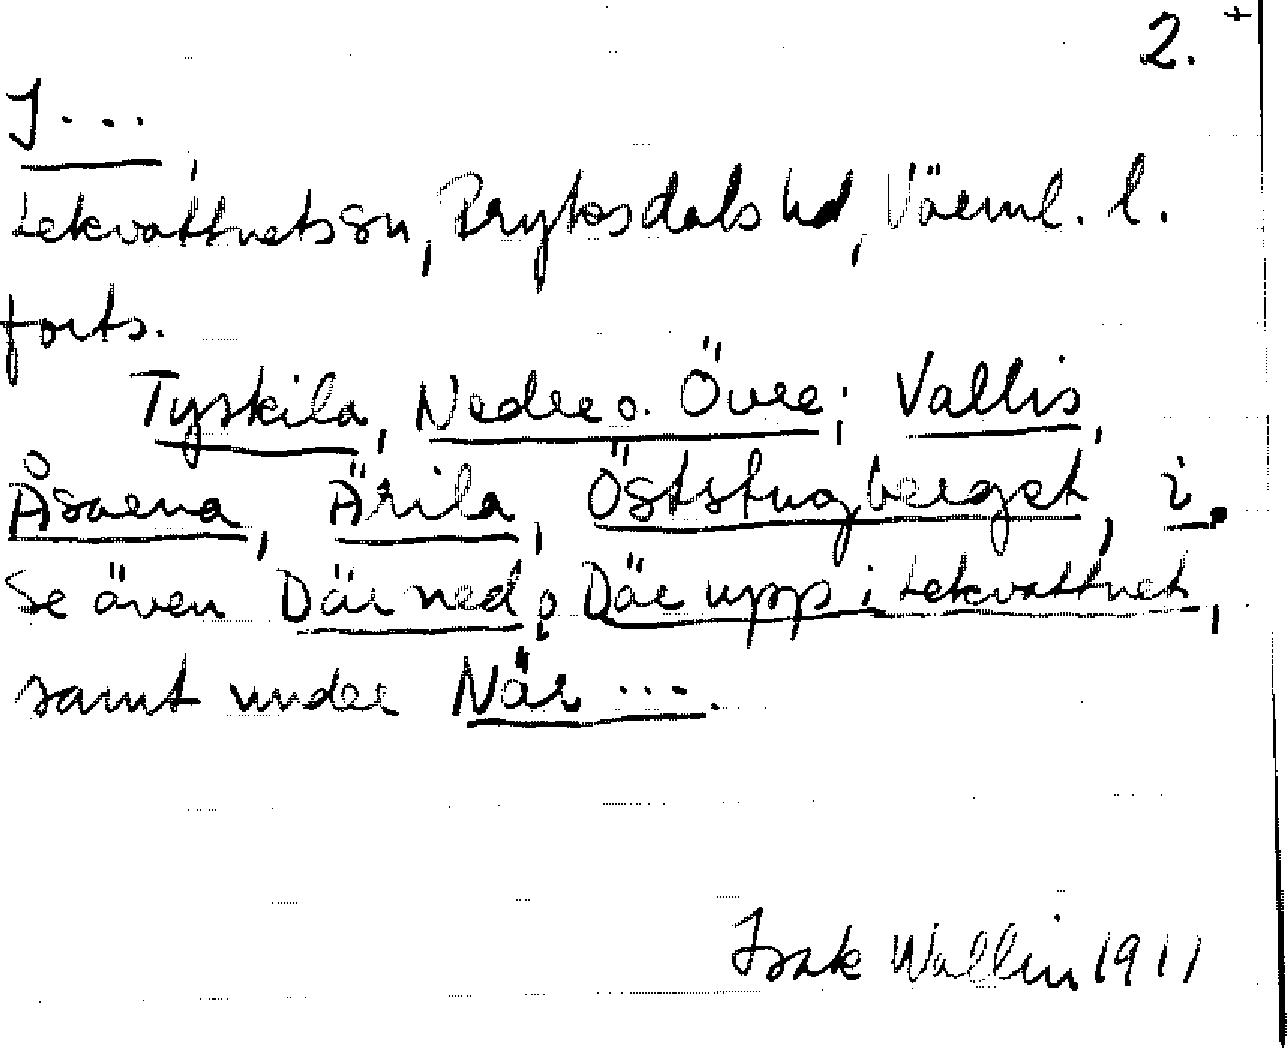 2. +
I...
Lekvattnets sn, Fryksdals hd, Värml. l.
forts.
Tyskila, Nedre o. Övre; Vallis,
Åsarna, Ärila, Öststugberget, i.
Se även Där ned o Där upp i Lekvattnet,
samt under När ....
Isak Wallin 1911